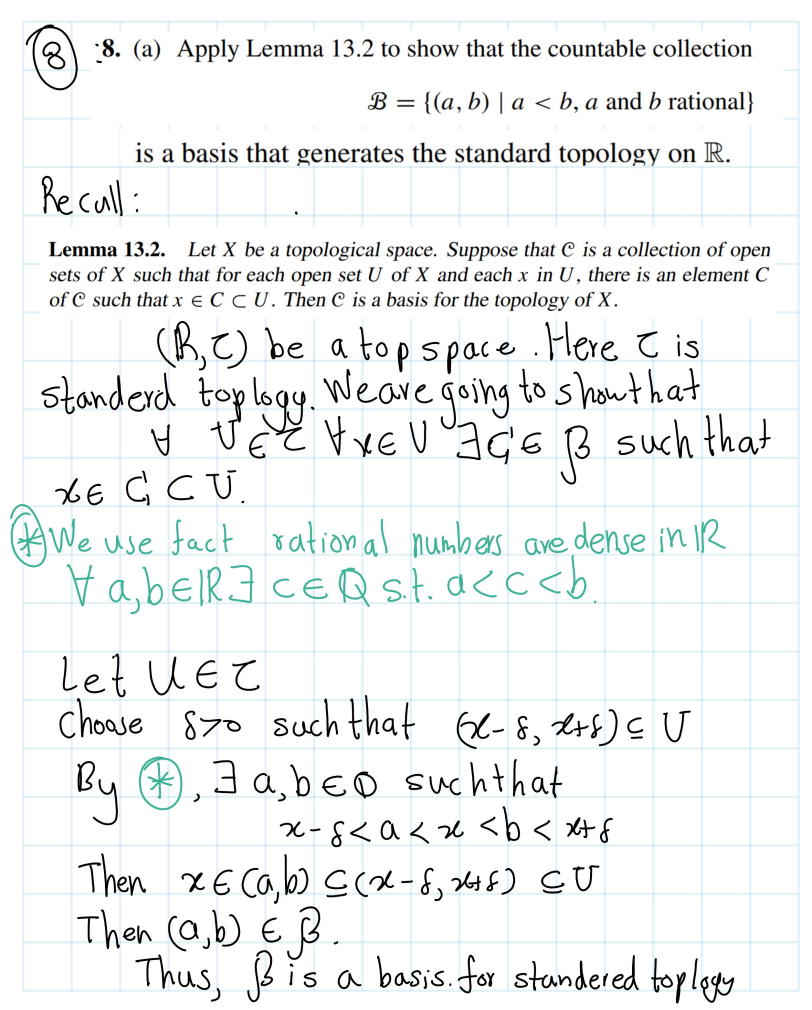 8
8. (a) Apply Lemma 13.2 to show that the countable collection
ℬ = {(a, b) | a < b, a and b rational}
is a basis that generates the standard topology on ℝ.
Recall :
Lemma 13.2. Let X be a topological space. Suppose that 𝒞 is a collection of open
sets of X such that for each open set U of X and each x in U, there is an element C
of 𝒞 such that x ∈ C ⊂ U. Then 𝒞 is a basis for the topology of X.
(ℝ,τ) be a top space. Here τ is
standerd toplogy. We are going to show that
∀ U∈τ ∀x∈U ∃C∈ β such that
x∈ C ⊂ U.
* We use fact rational numbers are dense in ℝ
∀ a,b∈ℝ ∃ c∈ℚ s.t. a<c<b.
Let U∈τ
Choose δ>0 such that (x-δ, x+δ) ⊆ U
By *, ∃ a,b∈ℚ such that
x-δ<a<x<b<x+δ
Then x∈(a,b) ⊆(x-δ, x+δ) ⊆U
Then (a,b) ∈ β.
Thus, β is a basis. for standered toplogy